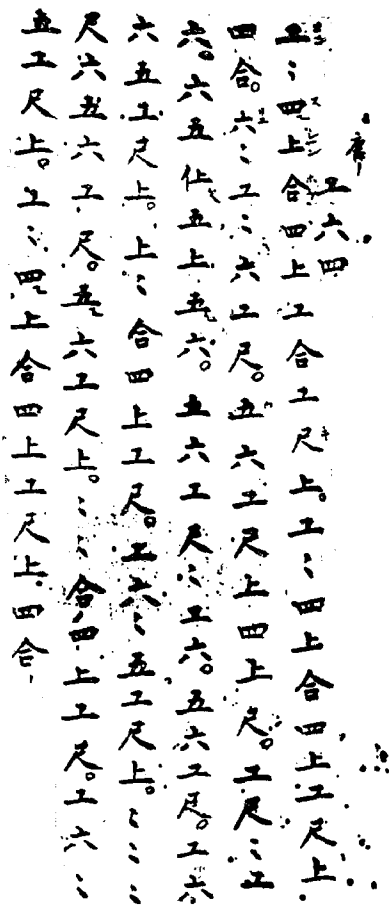 工六四
工ミ四上合四上工合工尺上。工ミ四上合四上工尺上
四合。六ミ工ミ六工尺。五六工尺上四上尺。工尺ミ工
六。六五仩五上五六。五六工尺ミ工六。五六工尺。工六
六五工尺上。上ミ合四上工尺。工六ミ五工尺上。ミミミ
尺六五六工尺。五六工尺上。ミミ合四上工尺。工六ミ
五工尺上。工ミ四上合四上工尺上。四合